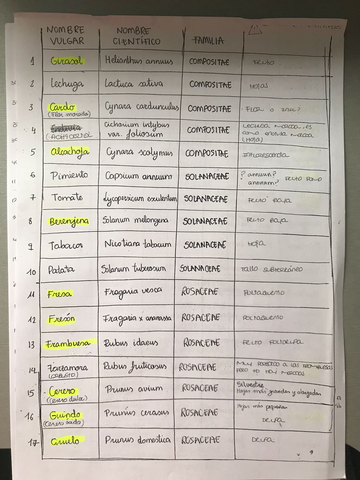 NOMBRE VULGAR NOMBRE CIENTÍFICO FAMILIA
1 Girasol Helianthus annuus COMPOSITAE FRUTO
2 Lechuga Lactuca sativa COMPOSITAE HOJAS
3 Cardo (Flor morada) Cynara cardunculus COMPOSITAE FLOR
4 (ACHICORIA) Cichorium intybus var. foliosum COMPOSITAE (HOJA)
5 Alcachofa Cynara scolymus COMPOSITAE
6 Pimiento Capsicum annuum SOLANACEAE FRUTO
7 Tomate Lycopersicum esculentum SOLANACEAE FRUTO BAYA
8 Berenjena Solanum melongena SOLANACEAE FRUTO BAYA
9 Tabaco Nicotiana tabacum SOLANACEAE HOJA
10 Patata Solanum tuberosum SOLANACEAE TALLO SUBTERRÁNEO
11 Fresa Fragaria vesca ROSACEAE
12 Fresón Fragaria x ananassa ROSACEAE
13 Frambuesa Rubus idaeus ROSACEAE FRUTO
14 Rubus fruticosus ROSACEAE
15 Cerezo (cerezo dulce) Prunus avium ROSACEAE Silvestre
16 Guindo Prunus cerasus ROSACEAE Hojas más pequeñas DRUPA
17 Ciruelo Prunus domestica ROSACEAE DRUPA